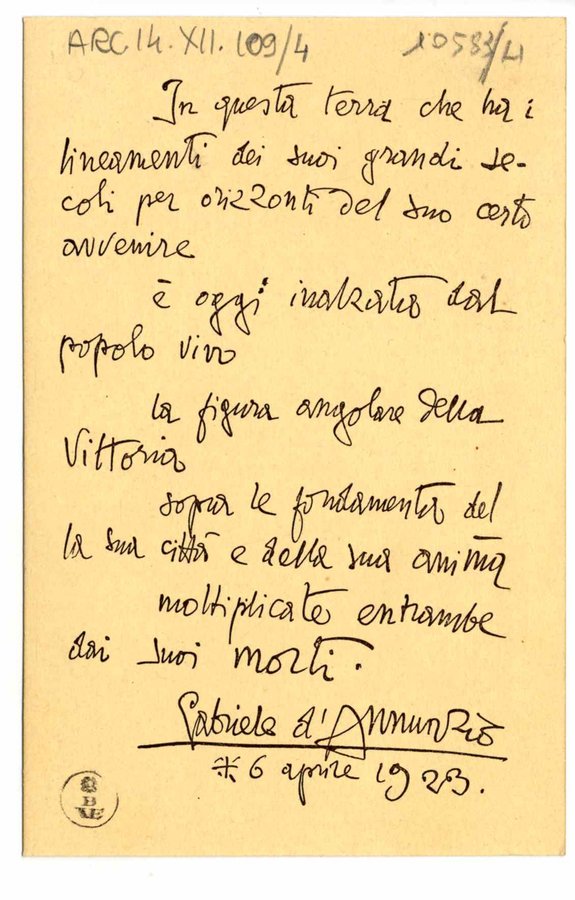 ARC.14.XII.109/4
10583/4
In questa terra che ha i
lineamenti dei suoi grandi se-
coli per orizzonti del suo certo
avvenire
è oggi inalzata dal
popolo vivo
la figura angolare della
Vittoria
sopra le fondamenta del
la sua città e della sua anima
moltiplicate entrambe
dai suoi morti.
Gabriele d'Annunzio
* 6 aprile 1923.